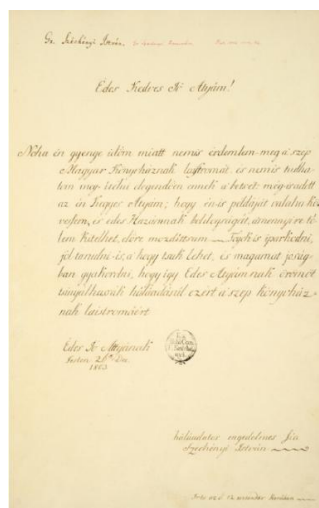 Gr. Széchényi István.
Édes Kedves N. Atyám!
Noha én gyenge időm miatt nemis érdemlem meg a szép
Magyar Könyvháznak laistromát, és nemis tudha-
tom meg itélni elegendőn ennek a betsét; meg-
az én Kegyes Atyám; hogy én is példáját
és édes Hazámnak boldogságát, a mennyire tő-
lem kitelhet, előre mozditsam Fogok is iparkodni,
jól tanulni is, a hogy tsak lehet, és magamat jóság-
ban gyakorolni, hogy így Édes Atyámnak örömet
tsinálhassak háládásúl ezért a szép Könyvház-
nak laistromáért.
Édes N. Atyámnak
26 Dec.
1803.
háládatos engedelmes fia
Széchényi István